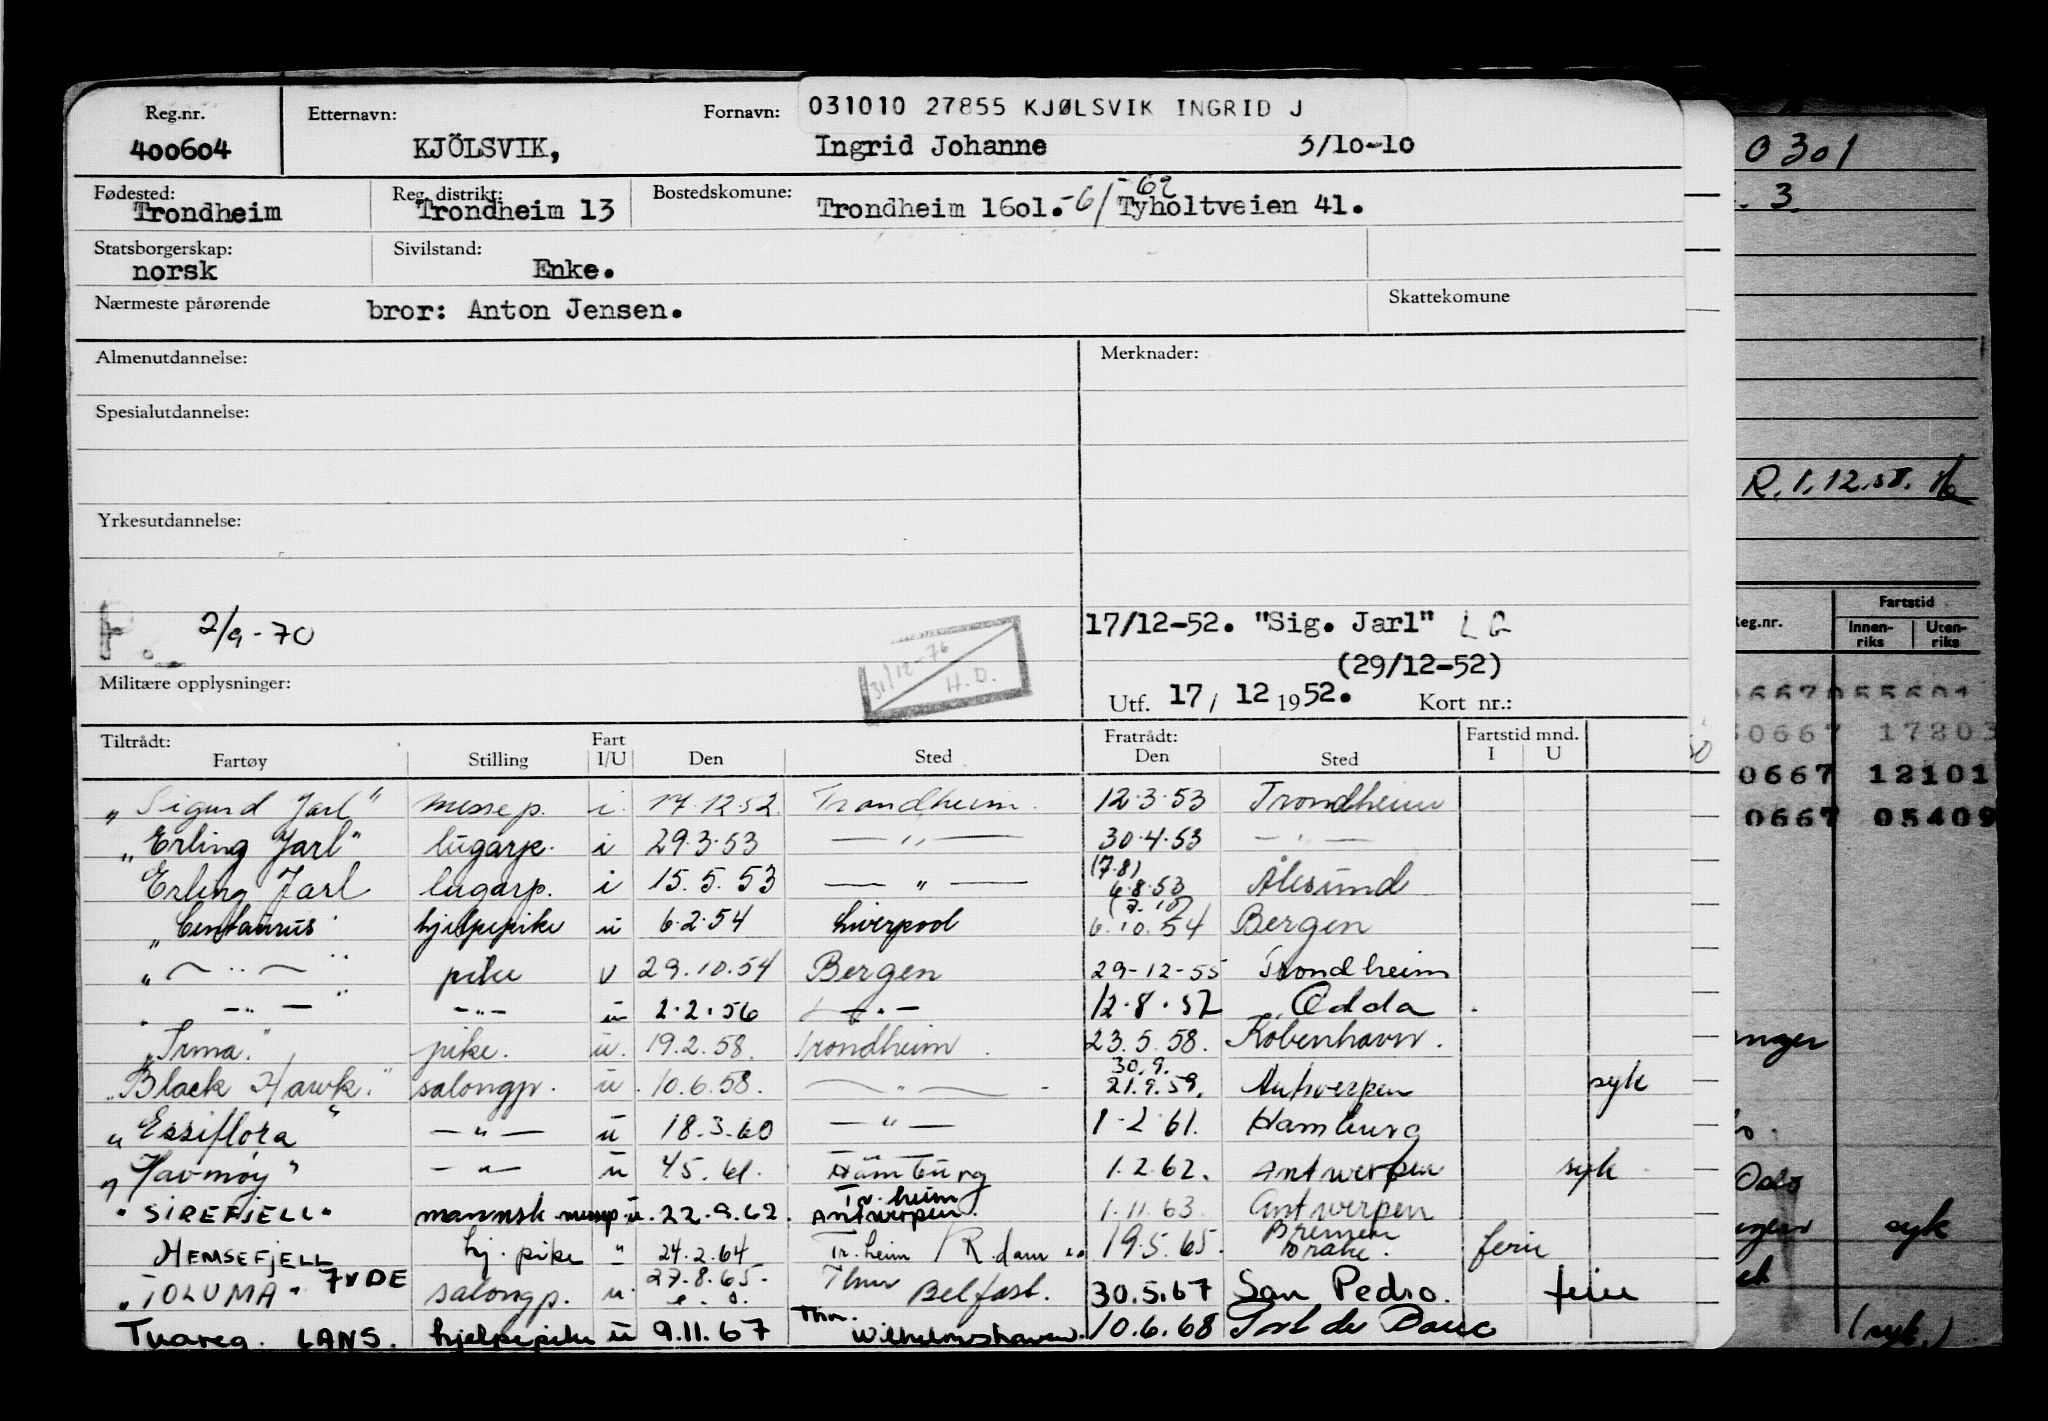 031010 27855 KJØLSVIK INGRID J
Reg.nr. Etternavn: Fornavn:
400604 KJÖLSVIK, Ingrid Johanne 3/10-10
Fødested: Reg. distrikt: Bostedskomune: -62
Trondheim Trondheim 13 Trondheim 1601. -61 Tyholtveien 41.
Statsborgerskap: Sivilstand:
norsk Enke.
Nærmeste pårørende bror: Anton Jensen. Skattekomune
Almenutdannelse: Merknader:
Spesialutdannelse:
Yrkesutdannelse:
2/9-70 17/12-52. "Sig. Jarl" LQ
31/12-76 H.D. (29/12-52)
Militære opplysninger: Utf. 17/ 12 1952. Kort nr.:
Tiltrådt: Fart Fratrådt: Fartstid mnd.
Fartøy Stilling I/U Den Sted Den Sted I U
"Sigurd Jarl" messep. i. 17.12.52. Trondheim. 12.3.53 Trondheim
"Erling Jarl" lugarp. i 29.3.53 — " — 30.4.53 — " —
(7.8)
Erling Jarl lugarp. i 15.5.53 — " — 6.8.53 Ålesund
"Centaurus" hjelpepike u 6.2.54 Liverpool 6.10.54 Bergen
" — " — " pike u 29.10.54 Bergen 29-12-55 Trondheim
" — " — " — " — u 2.2.56 — " — 12.8.57 Odda
"Irma." pike. u. 19.2.58. Trondheim. 23.5.58. København.
30.9.
"Black Hawk." salongp. u. 10.6.58. — " — 21.9.59. Antwerpen syk
"Essiflora" — " — u 18.3.60 — " — 1-2.61. Hamburg
"Havmøy" — " — u 4.5.61. Hamburg 1.2.62. Antwerpen syk
Tr.heim
"SIREFJELL" mannsk. messep. u. 22.9.62. Antwerpen. 1.11.63. Antwerpen
Bremen
HEMSEFJELL hj. pike " 24.2.64 Tr.heim /R.dam 19.5.65. Brake. ferie
"TOLUMA" 7vDE salongp. u. 27.8.65. Thm Belfast. 30.5.67 San Pedro. ferie
Tuareg. LANS. hjelpepike u 9.11.67 Thm. Wilhelmshaven. 10.6.68 Port de Bouc
0301
. 3.
R. 1.12.58.
Reg.nr. Fartstid
Innenriks Utenriks
0667 055601
0667 17203
0667 12101
0667 05409
Oslo
syk
(syk.)